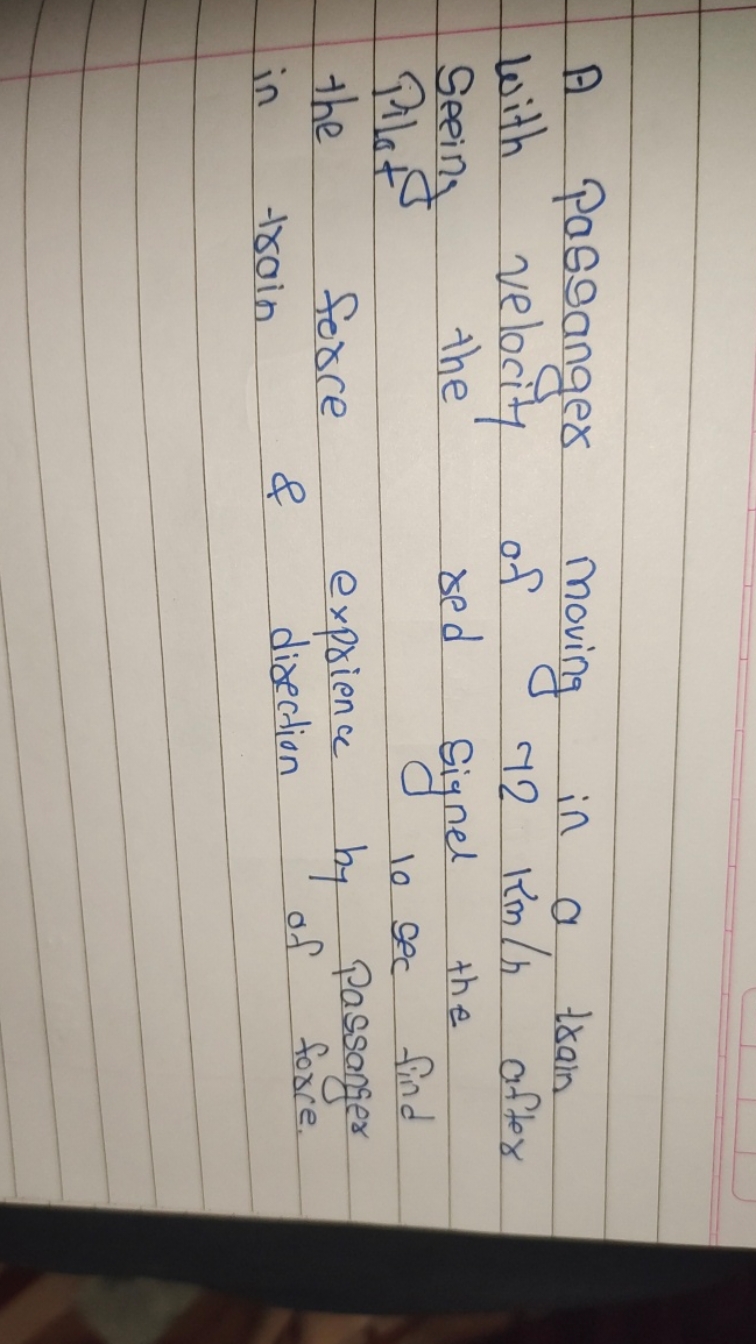 A Passanger moving in a train
with velocity of 72 Km/h after
Seeing the red Signel the
Pilot 10 sec find
the force exprience by Passanger
in train & direction of force.